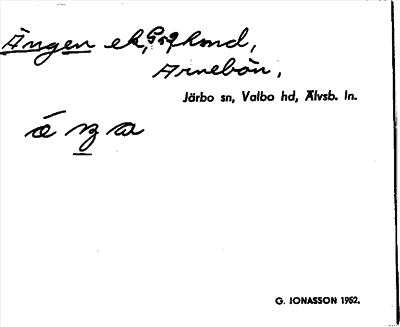 Ängen ek, Grg kond,
Arnebön,
Järbo sn, Valbo hd, Älvsb. ln.
á n z a
G. JONASSON 1952.